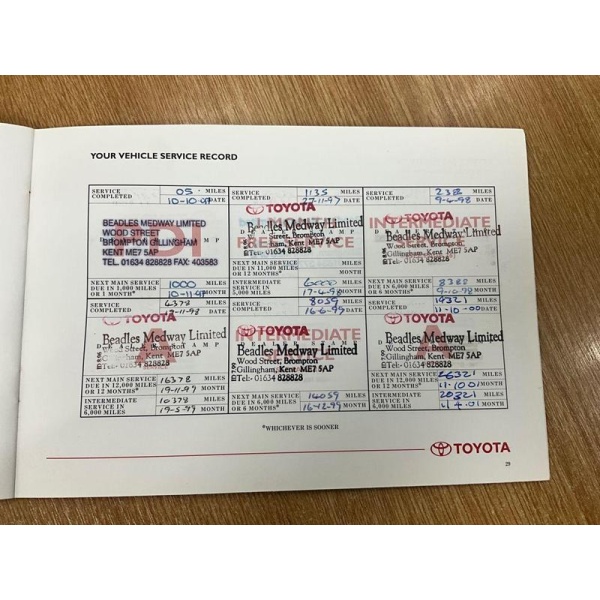 YOUR VEHICLE SERVICE RECORD
SERVICE COMPLETED
05 MILES
10-10-97 DATE
BEADLES MEDWAY LIMITED
WOOD STREET
BROMPTON GILLINGHAM
KENT ME7 5AP
TEL. 01634 828828 FAX: 403583
NEXT MAIN SERVICE DUE IN 1,000 MILES OR 1 MONTH*
1000 MILES
10-11-97 MONTH
SERVICE COMPLETED
1135 MILES
27-11-97 DATE
TOYOTA
1 MONTH
Beadles Medway Limited
Wood Street, Brompton
Gillingham, Kent ME7 5AP
Tel:- 01634 828828
NEXT MAIN SERVICE DUE IN 11,000 MILES OR 12 MONTHS*
MILES
MONTH
INTERMEDIATE SERVICE IN 5,000 MILES
6000 MILES
17-4-98 MONTH
SERVICE COMPLETED
MILES
9-6-98 DATE
INTERMEDIATE
SERVICE
Beadles Medway Limited
Wood Street, Brompton
Gillingham, Kent ME7 5AP
Tel:- 01634 828828
NEXT MAIN SERVICE DUE IN 6,000 MILES OR 6 MONTHS*
8388 MILES
9-10-98 MONTH
SERVICE COMPLETED
4378 MILES
11-98 DATE
TOYOTA
A
Beadles Medway Limited
Wood Street, Brompton
Gillingham, Kent ME7 5AP
NEXT MAIN SERVICE DUE IN 12,000 MILES OR 12 MONTHS*
16378 MILES
19-11-99 MONTH
INTERMEDIATE SERVICE IN 6,000 MILES
10378 MILES
19-5-99 MONTH
SERVICE COMPLETED
8059 MILES
16-6-99 DATE
INTERMEDIATE
TOYOTA
Beadles Medway Limited
Wood Street, Brompton
Gillingham, Kent ME7 5AP
Tel:- 01634 828828
NEXT MAIN SERVICE DUE IN 6,000 MILES OR 6 MONTHS*
14059 MILES
16-12-99 MONTH
SERVICE COMPLETED
14321 MILES
11-10-00 DATE
TOYOTA
A
Beadles Medway Limited
Wood Street, Brompton
Gillingham, Kent ME7 5AP
Tel:- 01634 828828
NEXT MAIN SERVICE DUE IN 12,000 MILES OR 12 MONTHS*
26321 MILES
11-10-01 MONTH
INTERMEDIATE SERVICE IN 6,000 MILES
20321 MILES
11-4-01 MONTH
*WHICHEVER IS SOONER
TOYOTA
29